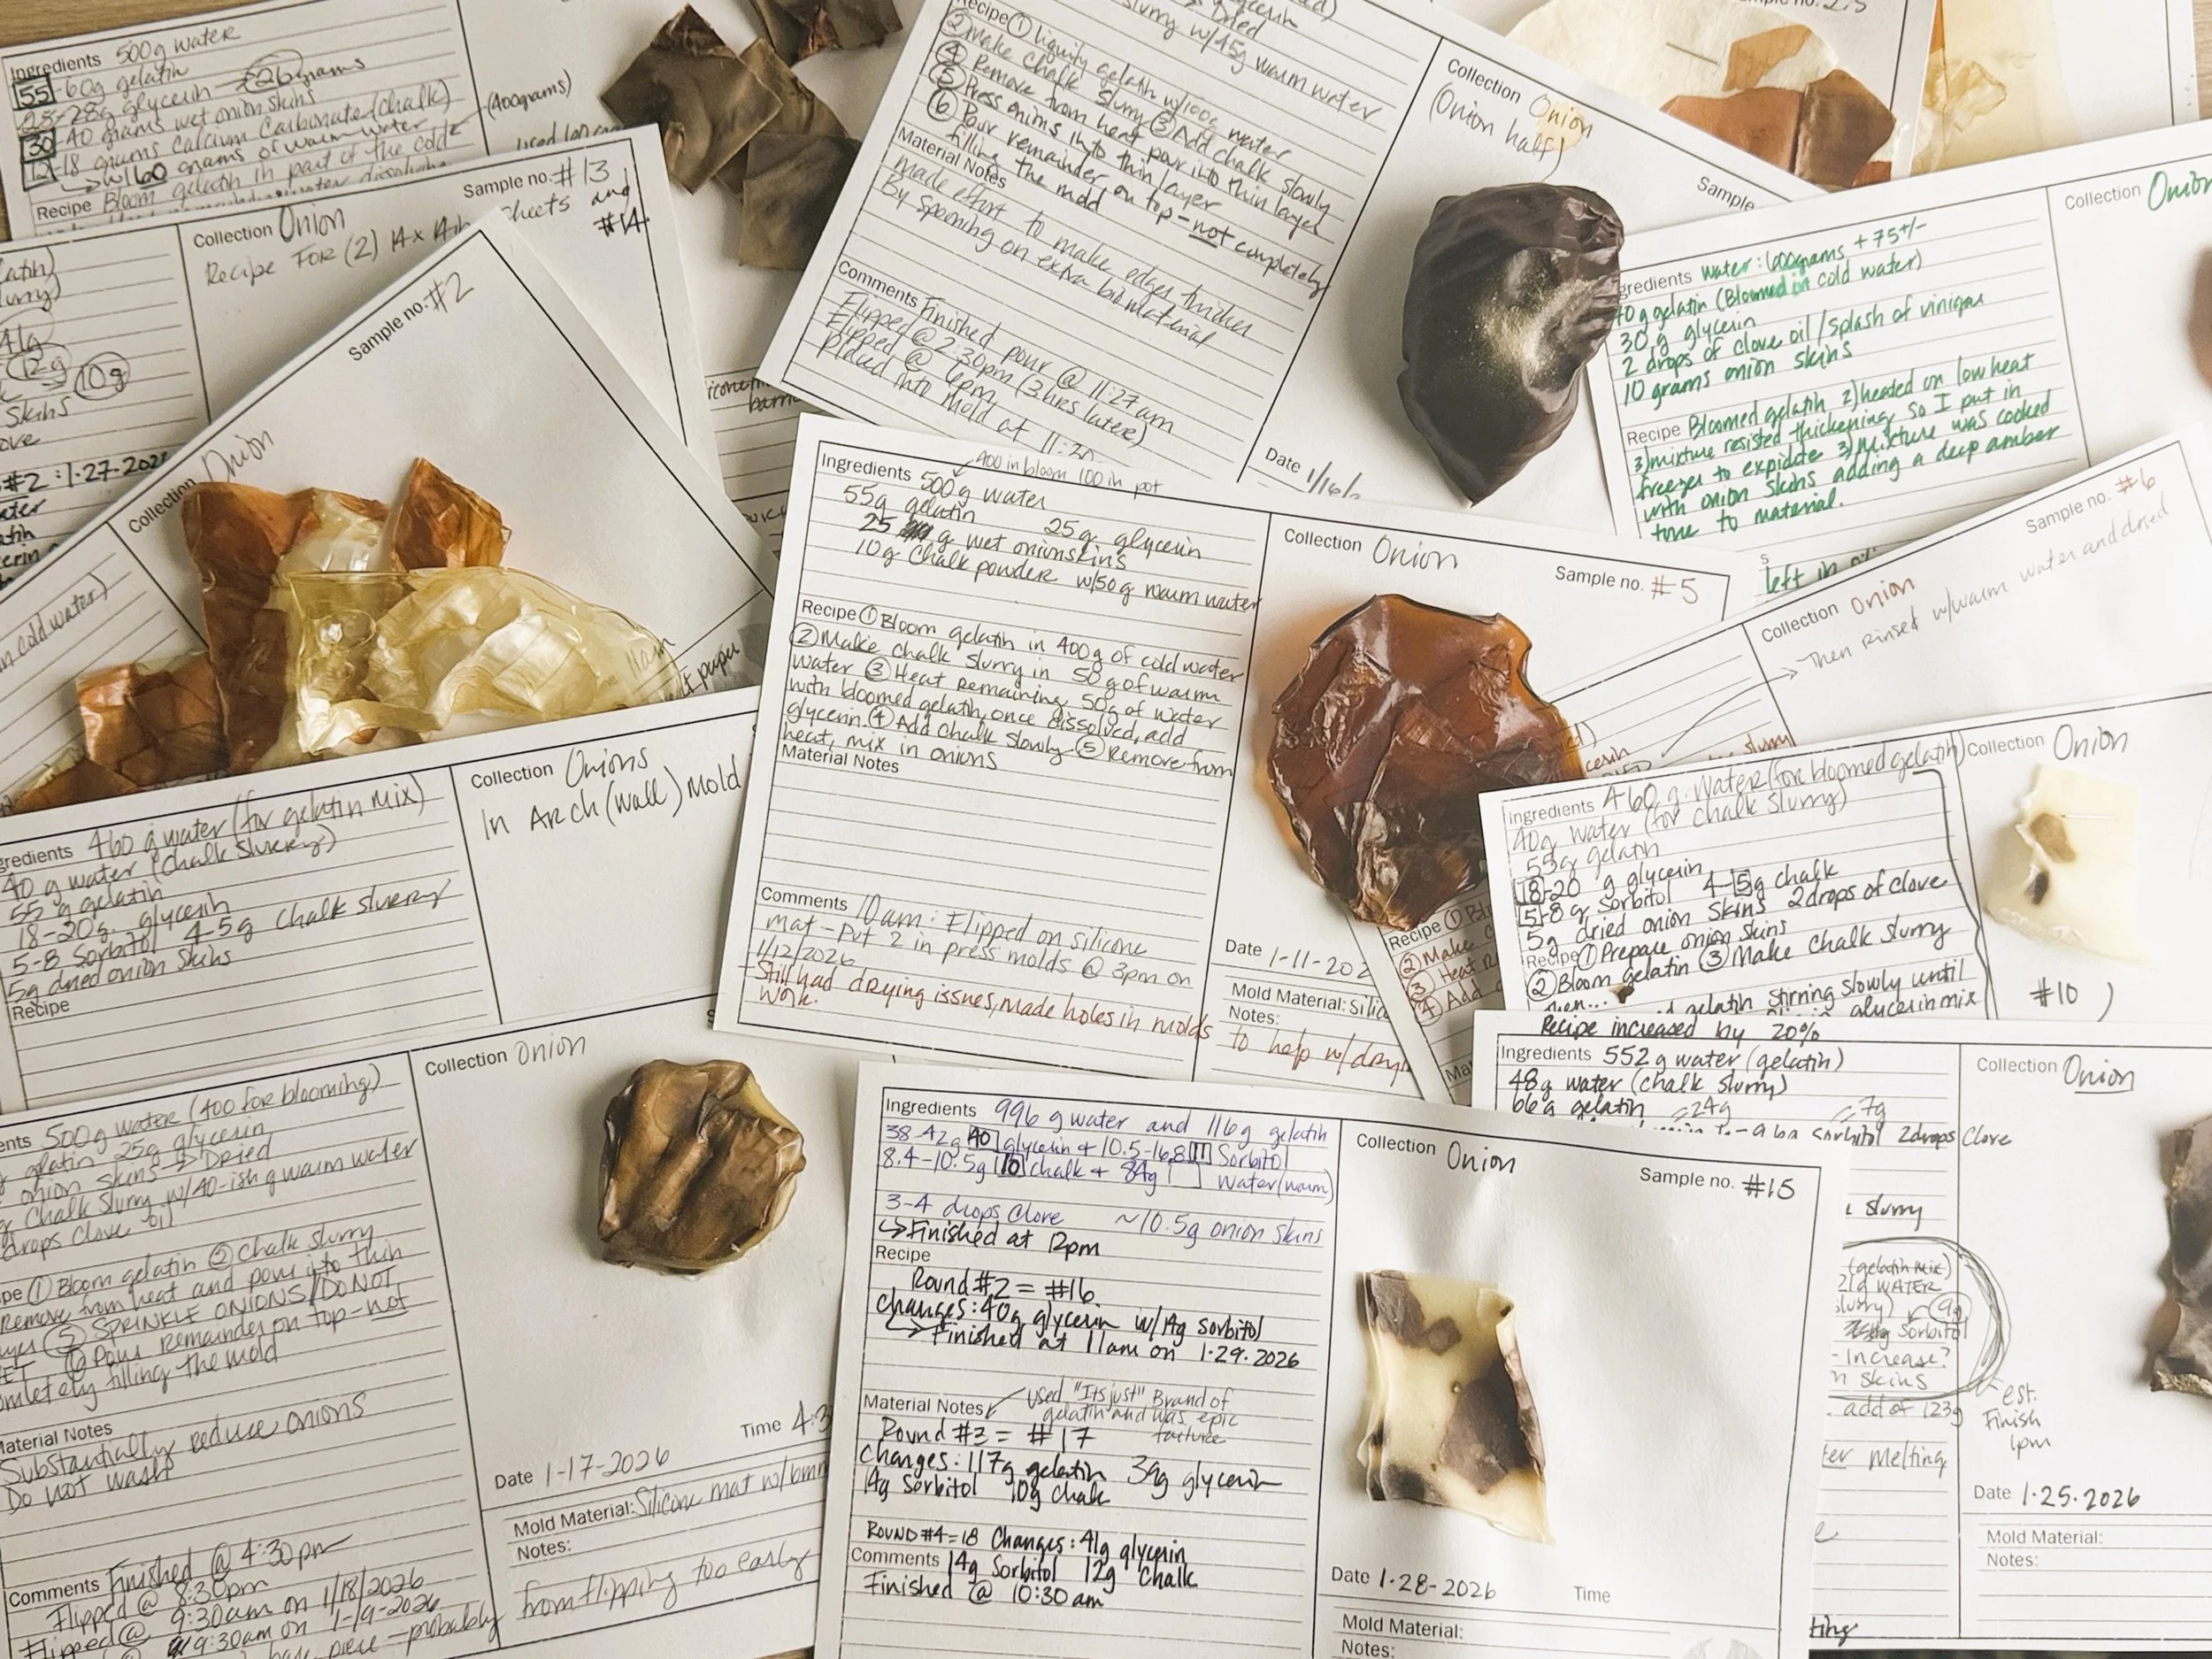 Ingredients 500g water
55-60g gelatin
25-28g glycerin 26 grams
30-40 grams wet onion skins
12-18 grams Calcium Carbonate (chalk)
w/160 grams of warm water
(400grams)
Recipe Bloom gelatin in part of the cold
water
Sample no. #13
and
#14
Collection Onion
Recipe FOR (2) 14x14in sheets
41g
12g
10g
Skins
#2: 1-27-202
Sample no. #2
Collection Onion
in cold water)
11am
paper
Recipe ① liquify gelatin w/100g water
② Make chalk slurry w/45g warm water
③ Add chalk slowly
④ Remove from heat pour into thin layer
⑤ Press onions into thin layer
⑥ Pour remainder on top - not completely
filling the mold
Material Notes
made effort to make edges thicker
by spooning on extra biomaterial
Comments Finished pour @ 11:27am
Flipped @ 2:30pm (3 hrs later)
Flipped @ 6pm
Placed into mold at 11:30
Collection Onion
(Onion half)
Sample
Date 1/16/
Sample no. 2.5
Collection Onion
gredients Water: 600grams + 75+/-
40g gelatin (Bloomed in cold water)
30g glycerin
2 drops of clove oil / splash of vinigar
10 grams onion skins
Recipe Bloomed gelatin 2) heated on low heat
3) mixture resisted thickening so I put in
freezer to expidate 3) Mixture was cooked
with onion skins adding a deep amber
tone to material.
left in
Sample no. #6
Collection Onion
Then rinsed w/warm water and dried
400 in bloom 100 in pot
Ingredients 500g water
55g gelatin 25g glycerin
25 g wet onionskins
10g Chalk powder w/50g warm water
Recipe ① Bloom gelatin in 400g of cold water
② Make chalk slurry in 50g of warm
water ③ Heat remaining 50g of water
with bloomed gelatin, once dissolved, add
glycerin. ④ Add chalk slowly ⑤ Remove from
heat, mix in onions
Material Notes
Comments 10am: Flipped on silicone
mat - Put 2 in press molds @ 3pm on
1/12/2026
- Still had drying issues, made holes in molds
to help w/dry
work.
Collection Onion
Sample no. #5
Date 1-11-202
Mold Material: Silic
Notes:
Recipe ①
② Make
③ Heat
④ Add
gredients 460 g water (for gelatin mix)
40 g water (chalk slurry)
55 g gelatin
18-20g. glycerin
5-8 Sorbitol 4-5g chalk slurry
5g dried onion skins
Recipe
Collection Onions
In Arch (wall) Mold
Ingredients 460 g. Water (for bloomed gelatin)
40g Water (for chalk slurry)
55g gelatin
18-20 g glycerin
5-8 g Sorbitol 4-5g chalk
5g dried onion skins 2 drops of clove
Recipe ① Prepare onion skins
② Bloom gelatin ③ Make chalk slurry
gelatin stirring slowly until
glycerin mix
Collection Onion
#10
Recipe increased by 20%
Ingredients 552 g water (gelatin)
48g water (chalk slurry)
66g gelatin =24g =7g
sorbitol 2drops Clove
Collection Onion
slurry
(gelatin mix)
21g WATER
slurry) 9g
Sorbitol
- increase?
skins
add of 123g
est.
Finish
1pm
melting
Date 1.25.2026
Mold Material:
Notes:
ents 500g water (400 for blooming)
gelatin 25g glycerin
onion skins → Dried
Chalk Slurry w/40-ish g warm water
drops clove oil
pe ① Bloom gelatin ② Chalk slurry
Remove from heat and pour into thin
⑤ SPRINKLE ONIONS / DO NOT
⑥ Pour remainder on top - not
completely filling the mold
Material Notes
Substantially reduce onions
Do not wash
Comments Finished @ 4:30pm
Flipped @ 8:30pm
Flipped @ 9:30am on 1/18/2026
9:30am on 1-19-2026
piece - probably
from flipping too early
Collection Onion
Date 1-17-2026
Time 4:3
Mold Material: Silicone mat w/6mm
Notes:
Ingredients 996 g water and 116g gelatin
38-42g 40 glycerin + 10.5-16.8 11 Sorbitol
8.4-10.5g 10 chalk + 84g water (warm)
3-4 drops Clove ~10.5g onion skins
↳ Finished at 12pm
Recipe
Round #2 = #16
Changes: 40g glycerin w/14g sorbitol
↳ Finished at 11am on 1.29.2026
Material Notes Used "Its just" Brand of
gelatin and was epic
failure
Round #3 = #17
Changes: 117g gelatin 39g glycerin
14g Sorbitol 10g chalk
ROUND #4=18 Changes: 41g glycerin
Comments 14g Sorbitol 12g Chalk
Finished @ 10:30am
Collection Onion
Sample no. #15
Date 1.28-2026
Time
Mold Material:
Notes: